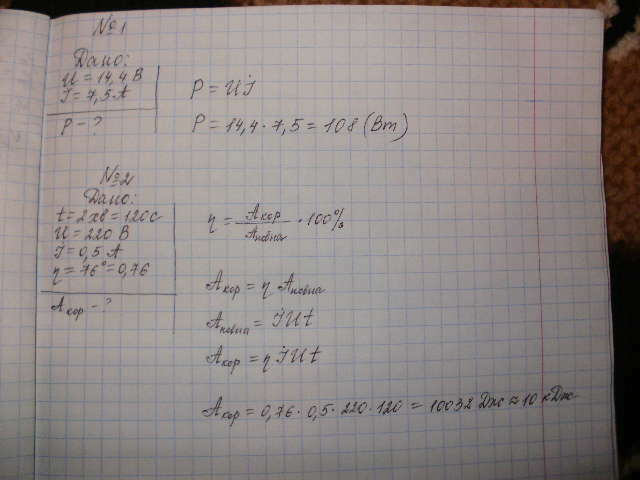 №1
Дано:
U = 14,4 В
I = 7,5 А
P - ?
P = UI
P = 14,4 · 7,5 = 108 (Вт)
№2
Дано:
t = 2хв = 120с
U = 220 В
I = 0,5 А
η = 76° = 0,76
Aкор - ?
η = Aкор / Aповна · 100%
Aкор = η Aповна
Aповна = IUt
Aкор = η IUt
Aкор = 0,76 · 0,5 · 220 · 120 = 10032 Дж ≈ 10 кДж